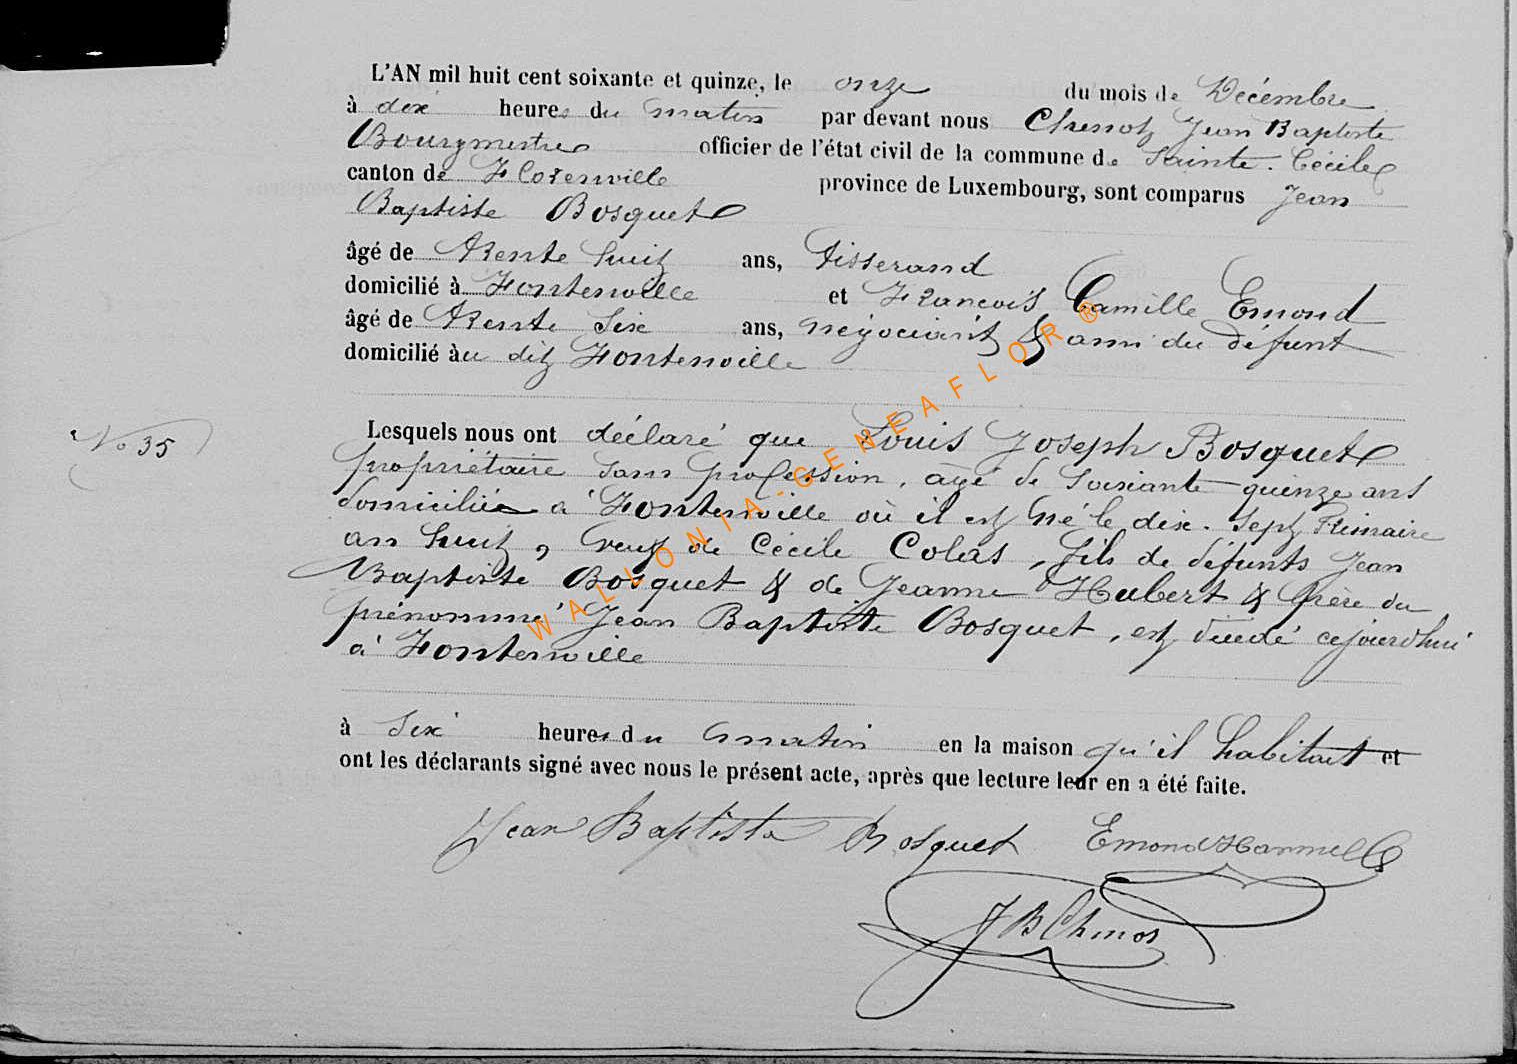 L'AN mil huit cent soixante et quinze, le onze du mois de Décembre
à dix heures du matin par devant nous Chenot Jean Baptiste
Bourgmestre officier de l'état civil de la commune de Sainte-Cécile
canton de Florenville province de Luxembourg, sont comparus Jean
Baptiste Bosquet
âgé de trente huit ans, tisserand
domicilié à Fontenoille et François Camille Emond
âgé de trente six ans, négociant & ami du défunt
domicilié au dit Fontenoille
No 35
Lesquels nous ont déclaré que Louis Joseph Bosquet
propriétaire sans profession, âgé de soixante quinze ans
domicilié à Fontenoille où il est né le dix-sept Frimaire
an huit, veuf de Cécile Colas, fils de défunts Jean
Baptiste Bosquet & de Jeanne Hubert & frère du
prénommé Jean Baptiste Bosquet, est décédé cejourd'hui
à Fontenoille
à six heures du matin en la maison qu'il habitait et
ont les déclarants signé avec nous le présent acte, après que lecture leur en a été faite.
Jean Baptiste Bosquet Emond
JB Chenot
WALLONIA-GENEAFLOR®